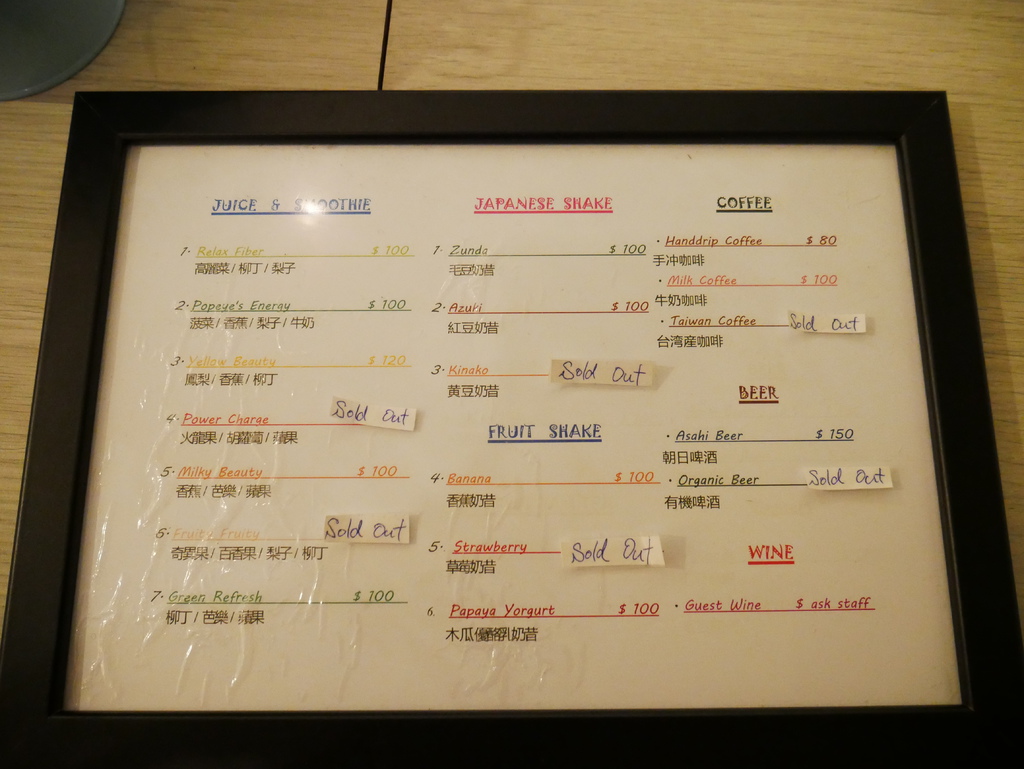 JUICE & SMOOTHIE
1. Relax Fiber $ 100
高麗菜 / 柳丁 / 梨子
2. Popeye's Energy $ 100
菠菜 / 香蕉 / 梨子 / 牛奶
3. Yellow Beauty $ 120
鳳梨 / 香蕉 / 柳丁
4. Power Charge Sold Out
火龍果 / 胡蘿蔔 / 蘋果
5. Milky Beauty $ 100
香蕉 / 芭樂 / 蘋果
6. Fruity Fruity Sold Out
奇異果 / 百香果 / 梨子 / 柳丁
7. Green Refresh $ 100
柳丁 / 芭樂 / 蘋果
JAPANESE SHAKE
1. Zunda $ 100
毛豆奶昔
2. Azuki $ 100
紅豆奶昔
3. Kinako Sold Out
黄豆奶昔
FRUIT SHAKE
4. Banana $ 100
香蕉奶昔
5. Strawberry Sold Out
草莓奶昔
6. Papaya Yorgurt $ 100
木瓜優酪乳奶昔
COFFEE
・Handdrip Coffee $ 80
手冲咖啡
・Milk Coffee $ 100
牛奶咖啡
・Taiwan Coffee Sold Out
台湾産咖啡
BEER
・Asahi Beer $ 150
朝日啤酒
・Organic Beer Sold Out
有機啤酒
WINE
・Guest Wine $ ask staff